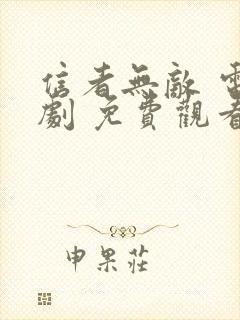 信者無敵 電
劇 免費觀看
申果莊